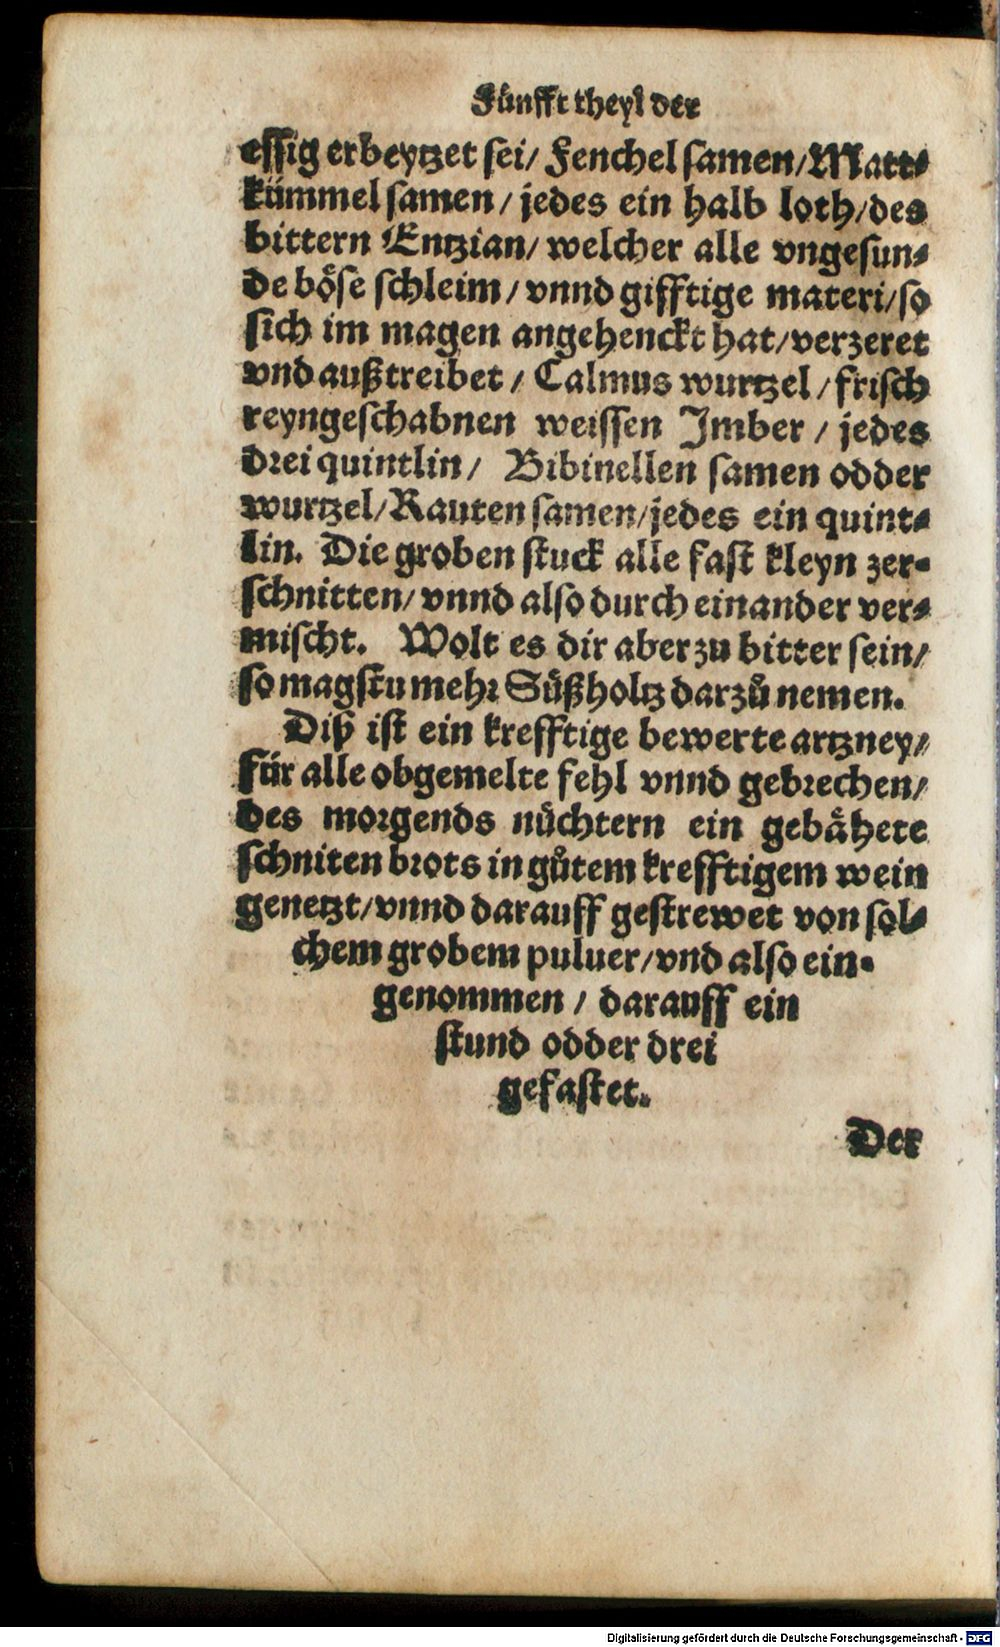 Fünfft theyl der
essig erbeytzet sei/ Fenchel samen/ Matt⸗
kümmel samen/ jedes ein halb loth/ des
bittern Entzian/ welcher alle vngesun⸗
de böse schleim/ vnnd gifftige materi/ so
sich im magen angehenckt hat/ verzeret
vnd außtreibet/ Calmus wurtzel/ frisch
reyngeschabnen weissen Imber/ jedes
drei quintlin/ Bibinellen samen odder
wurtzel/ Rauten samen/ jedes ein quint⸗
lin. Die groben stuck alle fast kleyn zer⸗
schnitten/ vnnd also durch einander ver⸗
mischt. Wolt es dir aber zu bitter sein/
so magstu mehr Süßholtz darzů nemen.
Diß ist ein krefftige bewerte artzney/
für alle obgemelte fehl vnnd gebrechen/
des morgends nüchtern ein gebähete
schniten brots in gůtem krefftigem wein
genetzt/ vnnd darauff gestrewet von sol⸗
chem grobem puluer/ vnd also ein⸗
genommen/ darauff ein
stund odder drei
gefastet.
Der
Digitalisierung gefördert durch die Deutsche Forschungsgemeinschaft - DFG